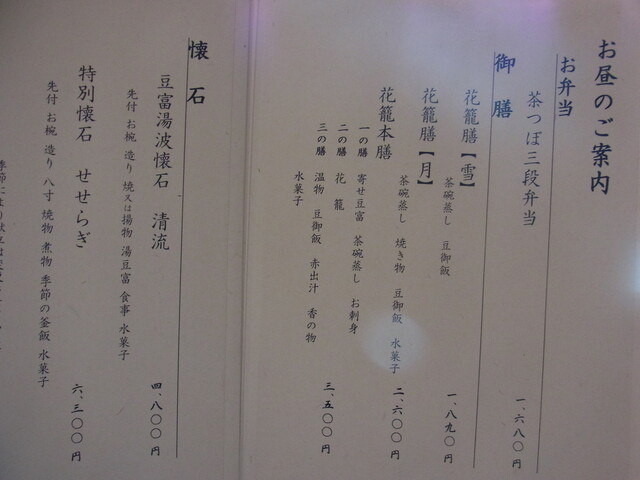 お昼のご案内
お弁当
茶つぼ三段弁当 一、六八〇円
御膳
花籠膳【雪】 一、八九〇円
茶碗蒸し 豆御飯
花籠膳【月】 二、六〇〇円
茶碗蒸し 焼き物 豆御飯 水菓子
花籠本膳 三、五〇〇円
一の膳 寄せ豆富 茶碗蒸し お刺身
二の膳 花籠
三の膳 温物 豆御飯 赤出汁 香の物
水菓子
懐石
豆富湯波懐石 清流 四、八〇〇円
先付 お椀 造り 焼又は揚物 湯豆富 食事 水菓子
特別懐石 せせらぎ 六、三〇〇円
先付 お椀 造り 八寸 焼物 煮物 季節の釜飯 水菓子
季節により献立は